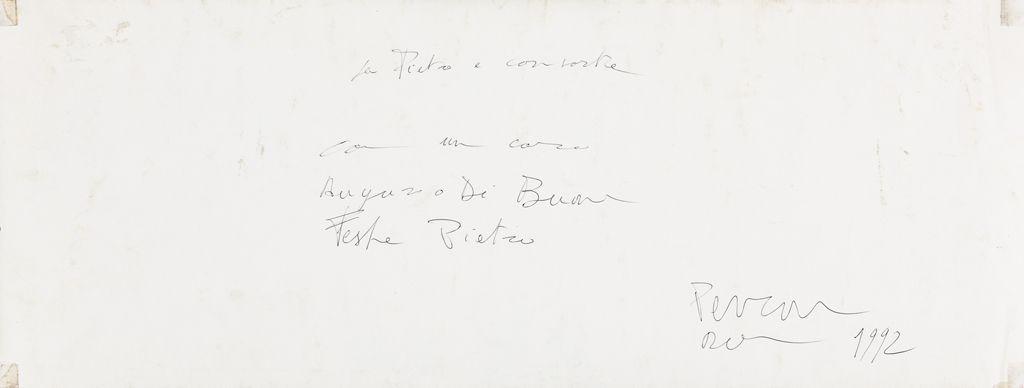 Pietro e consorte
con un caro
Augurio Di Buone
Feste Pietro
1992